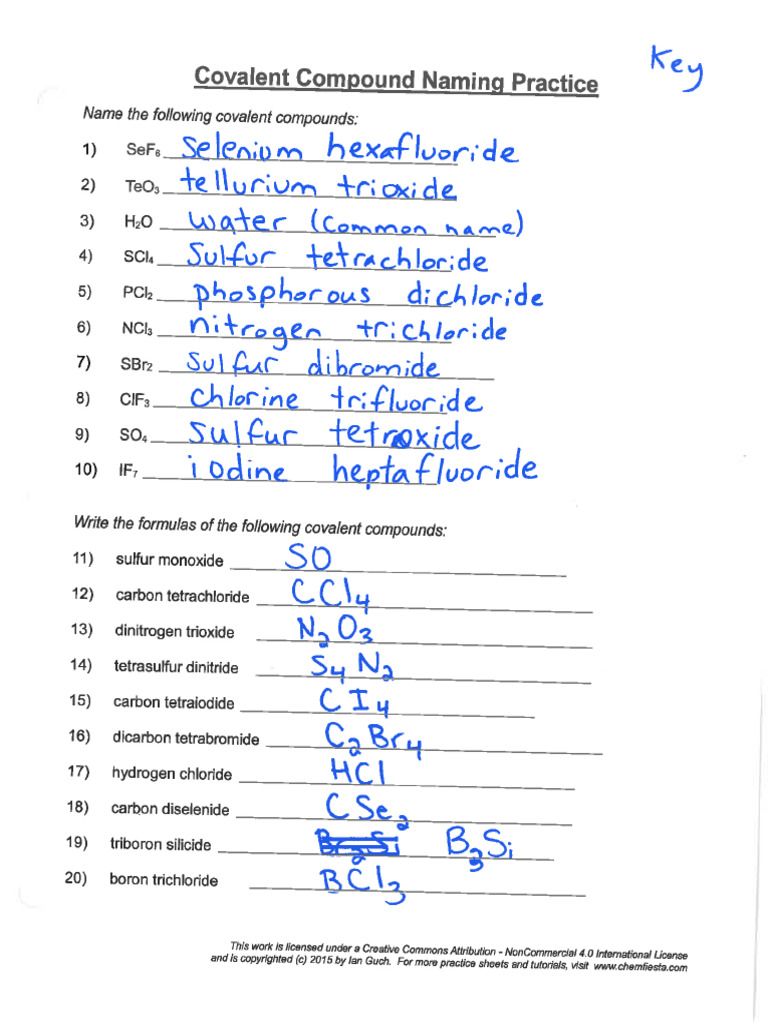 Key
Covalent Compound Naming Practice
Name the following covalent compounds:
1) SeF₆ selenium hexafluoride
2) TeO₃ tellurium trioxide
3) H₂O water (common name)
4) SCl₄ Sulfur tetrachloride
5) PCl₂ phosphorous dichloride
6) NCl₃ nitrogen trichloride
7) SBr₂ sulfur dibromide
8) ClF₃ chlorine trifluoride
9) SO₄ sulfur tetroxide
10) IF₇ iodine heptafluoride
Write the formulas of the following covalent compounds:
11) sulfur monoxide SO
12) carbon tetrachloride CCl₄
13) dinitrogen trioxide N₂O₃
14) tetrasulfur dinitride S₄N₂
15) carbon tetraiodide CI₄
16) dicarbon tetrabromide C₂Br₄
17) hydrogen chloride HCl
18) carbon diselenide CSe₂
19) triboron silicide B₃Si
20) boron trichloride BCl₃
This work is licensed under a Creative Commons Attribution - NonCommercial 4.0 International License
and is copyrighted (c) 2015 by Ian Guch. For more practice sheets and tutorials, visit www.chemfiesta.com